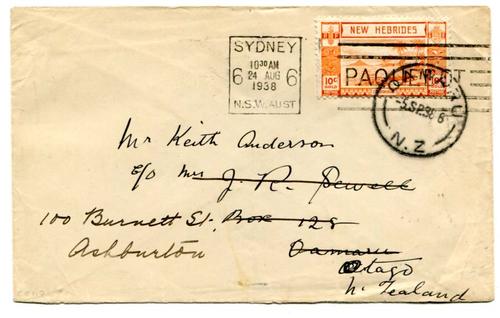 SYDNEY
10 30 AM
6 24 AUG 6
1938
N.S.W. AUST
NEW HEBRIDES
10c
PAQUEBOT
OAMARU
5 SP 38
N.Z
Mr Keith Anderson
c/o Mrs J. R. Sewell
100 Burnett St. Box 128
Ashburton Oamaru
Otago
N. Zealand